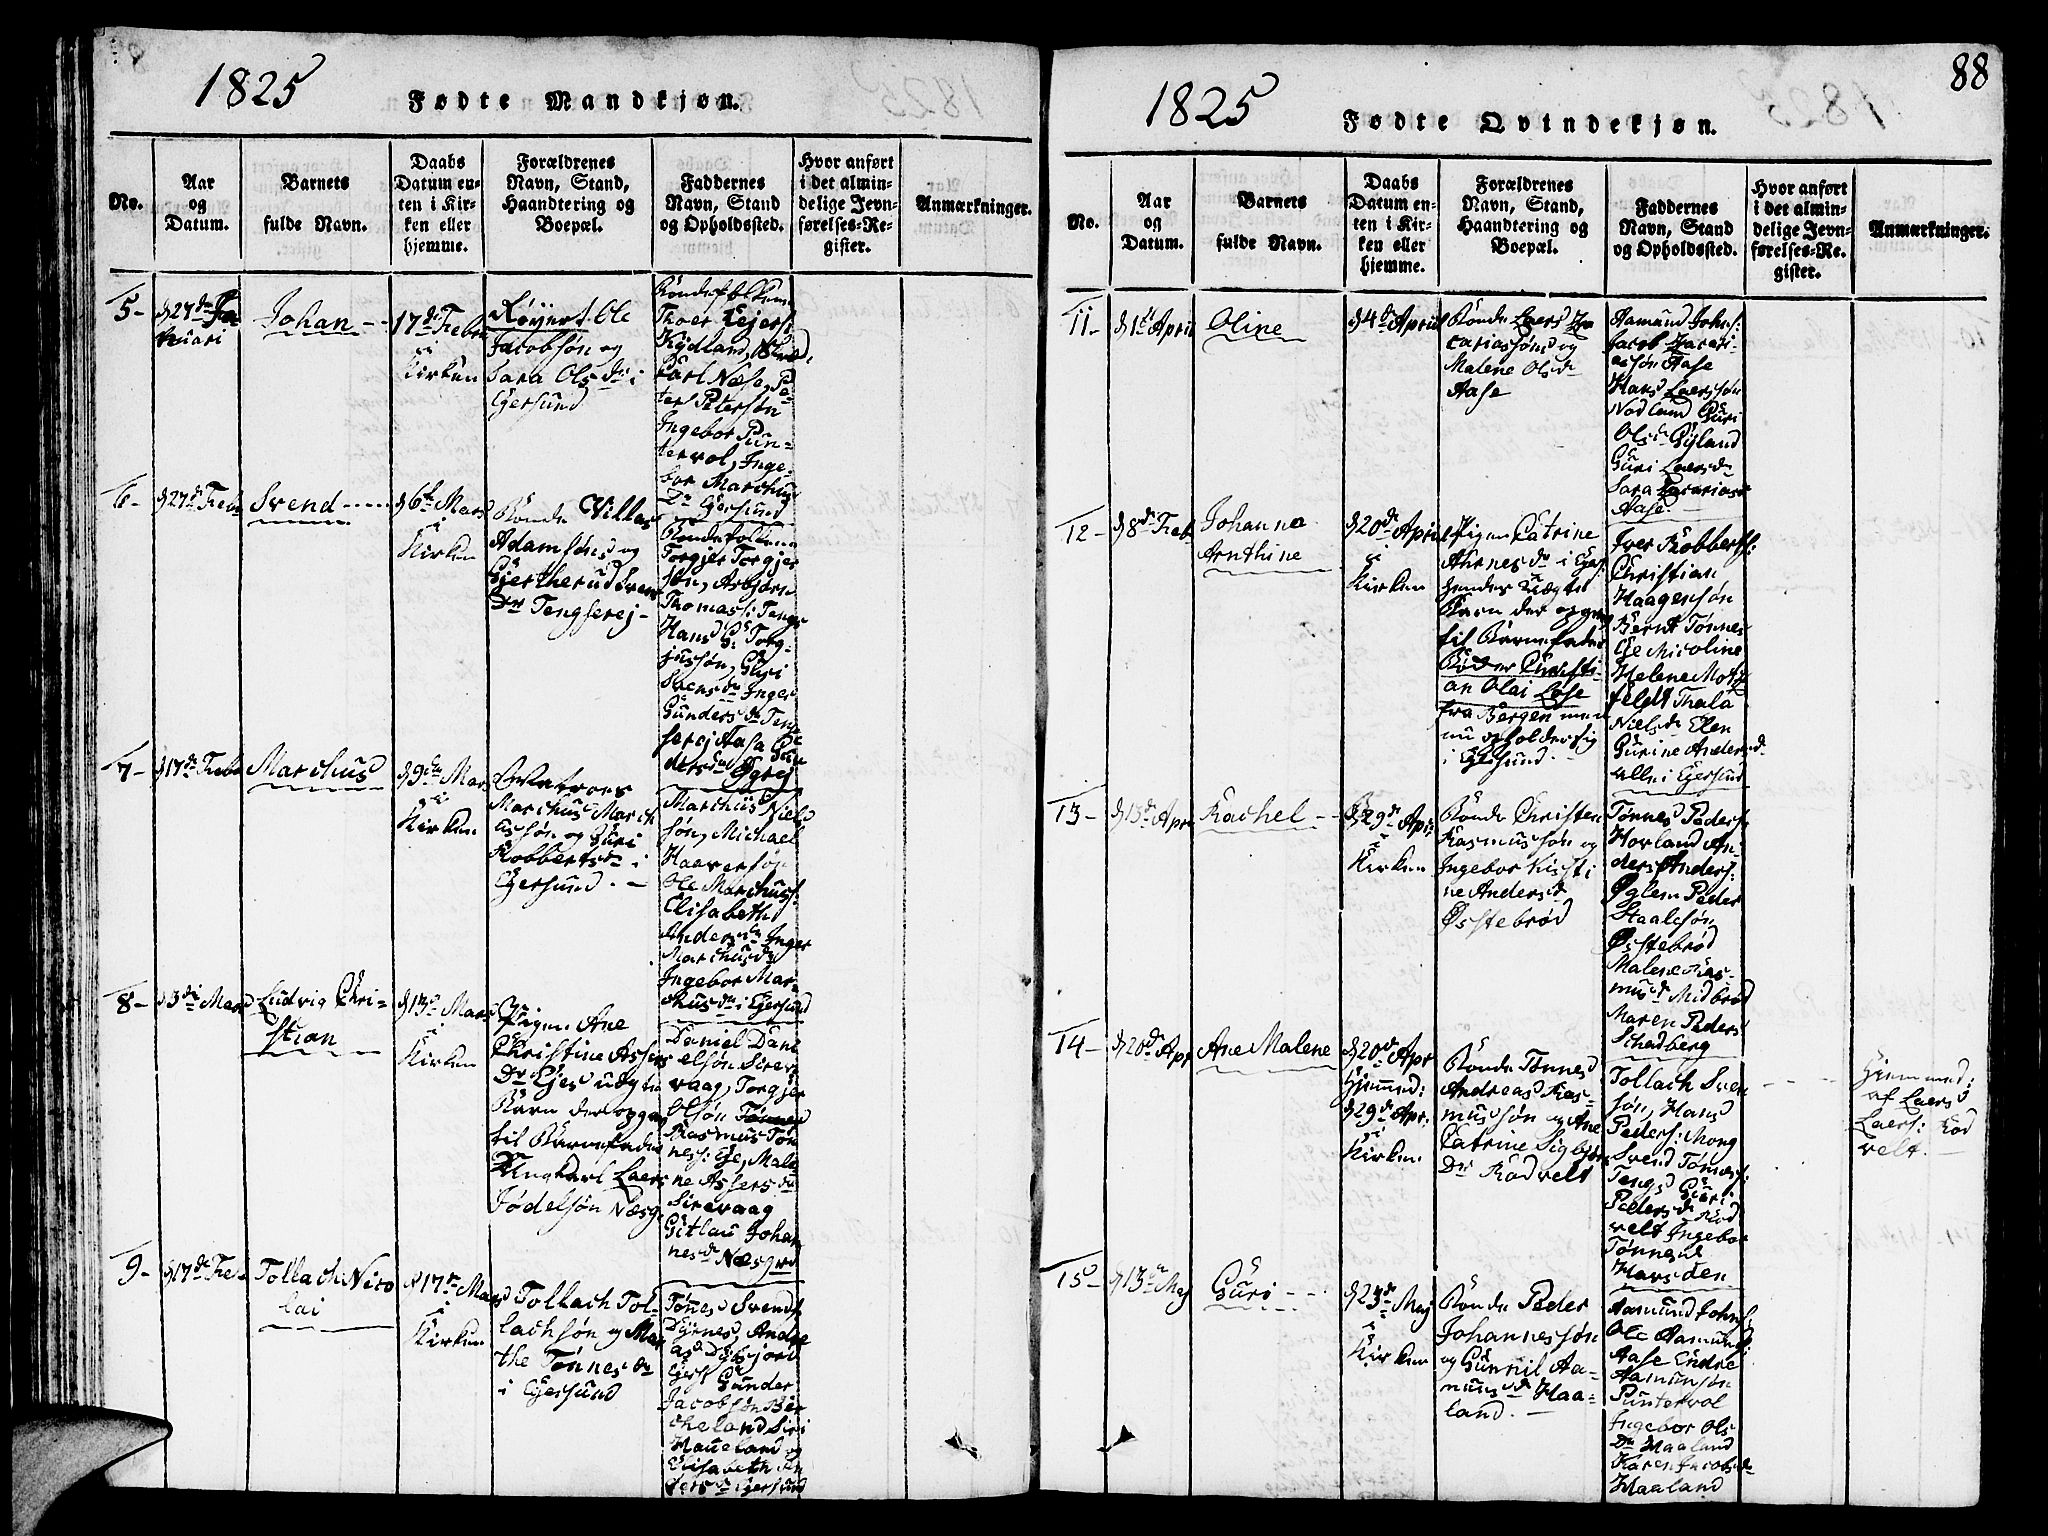 1825
Fødte Mandkjøn.
No.
Aar
og
Datum.
Barnets
fulde Navn.
Daabs
Datum en-
ten i Kir-
ken eller
hjemme.
Forældrenes
Navn, Stand,
Haandtering og
Boepæl.
Faddernes
Navn, Stand
og Opholdssted.
Hvor anført
i det almin-
delige Jevn-
førelses-Re-
gister.
Anmærkninger.
5-
Johan
17de Febr
i
Kirken
Ole
Jacobsøn og
Sara Olsdr i
Egersund
Kydland,
Carl Næse, Pe-
ter Petersøn
Ingebor Pun-
tervol, Inge-
bor Marchus
Dr Egersund
6-
d 27de Febr
Svend
d 6te Mars
i
Kirken
Bonde Villas
Adamsøn og
Dr Tengserej-
Bondefolkene
Torgjer Torgjer
søn, Asbjørn
Thomass: Tengs
Hans G: Torg-
jussøn, Guri
Svensdr Inger
Gundersdr Teng
serej Aasa Gun
dersdr Egrej
7-
d 17de Febr
Marchus
d 9de Mar
i
Kirken
Matroes
Marchus March
ussøn og Guri
Robbertsdr i
Egersund.-
Marchus Niels
søn, Michael
Haaversøn
Ole Marchuss:
Elisabeth
Andersdr Inger
Marchusdr
Ingebor Mar-
chusdr i Egersund
8-
d 3de Mars
Ludvig Chri-
stian
d 13de Mars
i
Kirken
Pigen Ane
Christine Assers
Dr Ejes uægte
Barn der opgav
til Barnefader
Ungkarl Laers
Jødelsøn Næsg
Daniel Dani
elsøn Sire-
vaag, Torgjer
Olsøn Tønnes
Rasmus Tøn
ness: Eje, Male
ne Assersdr
Sirevaag
Gitlau Johan
nesdr Næsgrd
9-
d 17de Fe-
Tollach Nico
lai
d 17de Mars
i
Kirken
Tollach Tol-
lachsøn og Mar
the Tønnesdr
i Egersund
Tønes Svends
Egers Gunder
Jacobsøn Bir
cheland Siri
Haueland og
Elisabeth
dersdr Egersund
1825
Fødte Qvindekjøn.
88
No.
Aar
og
Datum.
Barnets
fulde Navn.
Daabs
Datum en-
ten i Kir-
ken eller
hjemme.
Forældrenes
Navn, Stand,
Haandtering og
Boepæl.
Faddernes
Navn, Stand
og Opholdssted.
Hvor anført
i det almin-
delige Jevn-
førelses-Re-
gister.
Anmærkninger.
11-
d 1ste April
Oline
d 4de April
Bonde Laers Za
cariassøn og
Malene Olsdr
Aase
Aamund Johns:
Jacob Zacari-
assøn Aase
Hans Laerssøn
Nodland Guri
Olsdr Eyland
Guri Laersdr
Sara Zacarias
Aase.
12-
d 8de Febr
Johanna
Arnthine
d 20de April
i
Kirken
Pigen Catrine
Ahrnesdr i Eger
hendes uægte
Barn der opgav
til Barnefader
Bøder Christi-
an Olai Lose
fra Bergen men
nu opholder sig
i Egersund.
Iver Robberss:
Christian
Haagensøn
Bernt Tønnes
Eje Nicoline
Helene Motz
feldt Thala
Nielsdr Elen
Gurine Andersdr
alle i Egersund
13-
d 13de Apr
Rachel
d 29de Apr:
i
Kirken
Bonde Christen
Rasmussøn og
Ingebor Kirsti
ne Andersdr
Østebrød
Tønnes Peders:
Hovland An-
ders Anders:
Øglem Peder
Staalesøn
Østebrød
Malene Ras-
musdr Midbrød
Maren Peders
Schadberg
14-
d 20de Apr
Ane Malene
d 20de Apr
Hjemmed:
d 29de Apr:
i
Kirken
Bonde Tønnes
Andreas Ras-
mussøn og Ane
Catrine Sigbjørns
Dr Rødvelt
Tollach Sven
søn, Hans
Peders: Mong
Svend Tønness:
Tengs Guri
Pedersdr Rød
velt Ingebor
Tønnesdr
Havsøen
Hjemmed:
af Laers
Laers: Rød
velt.
15-
d 13de Maj
Guri
d 23de Maj
i
Kirken
Bonde Peder
Johannessøn
og Gunnil Aa-
mundsdr Haa-
land.
Aamund Johns:
Ole Aamunds:
Aase Endre
Aamunsøn
Puntervol
Ingebor Ols
Dr Haaland
Karen Jacobsdr
Haaland